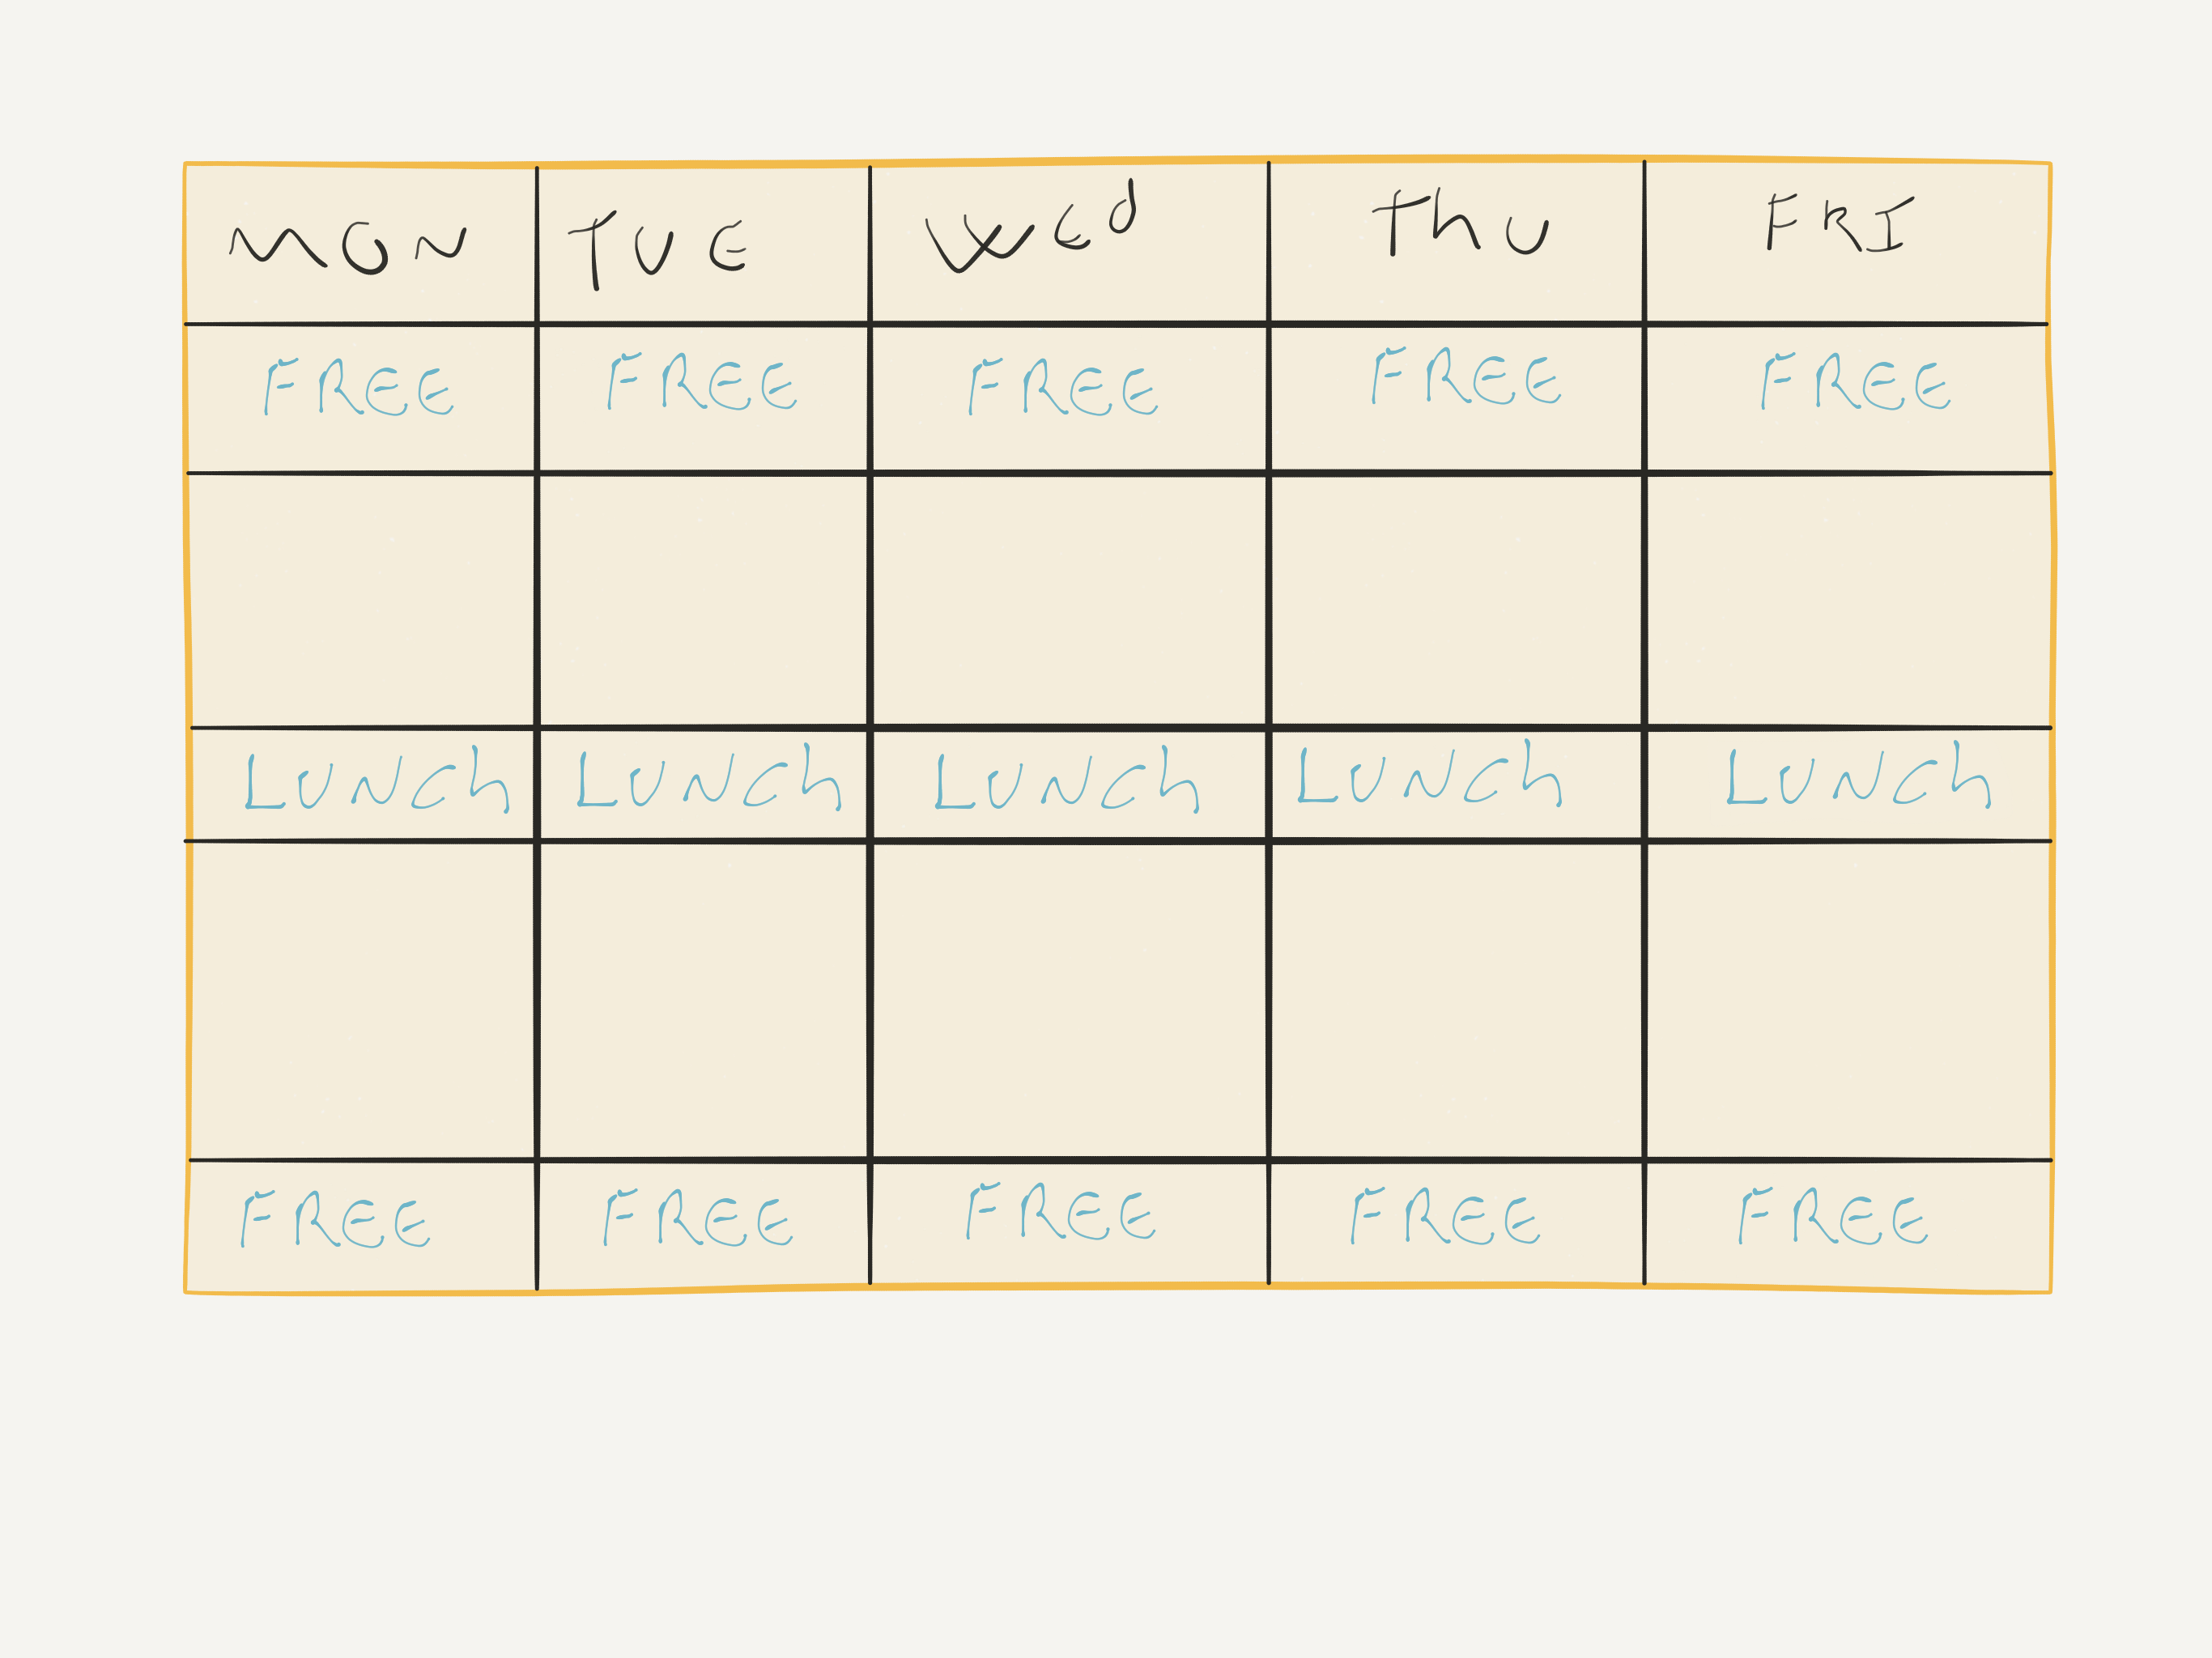 Mon Tue Wed Thu FRI
FREE FREE FREE FREE FREE
LUNCh LUNCh LUNCh LUNCh LUNCh
FREE FREE FREE FREE FREE